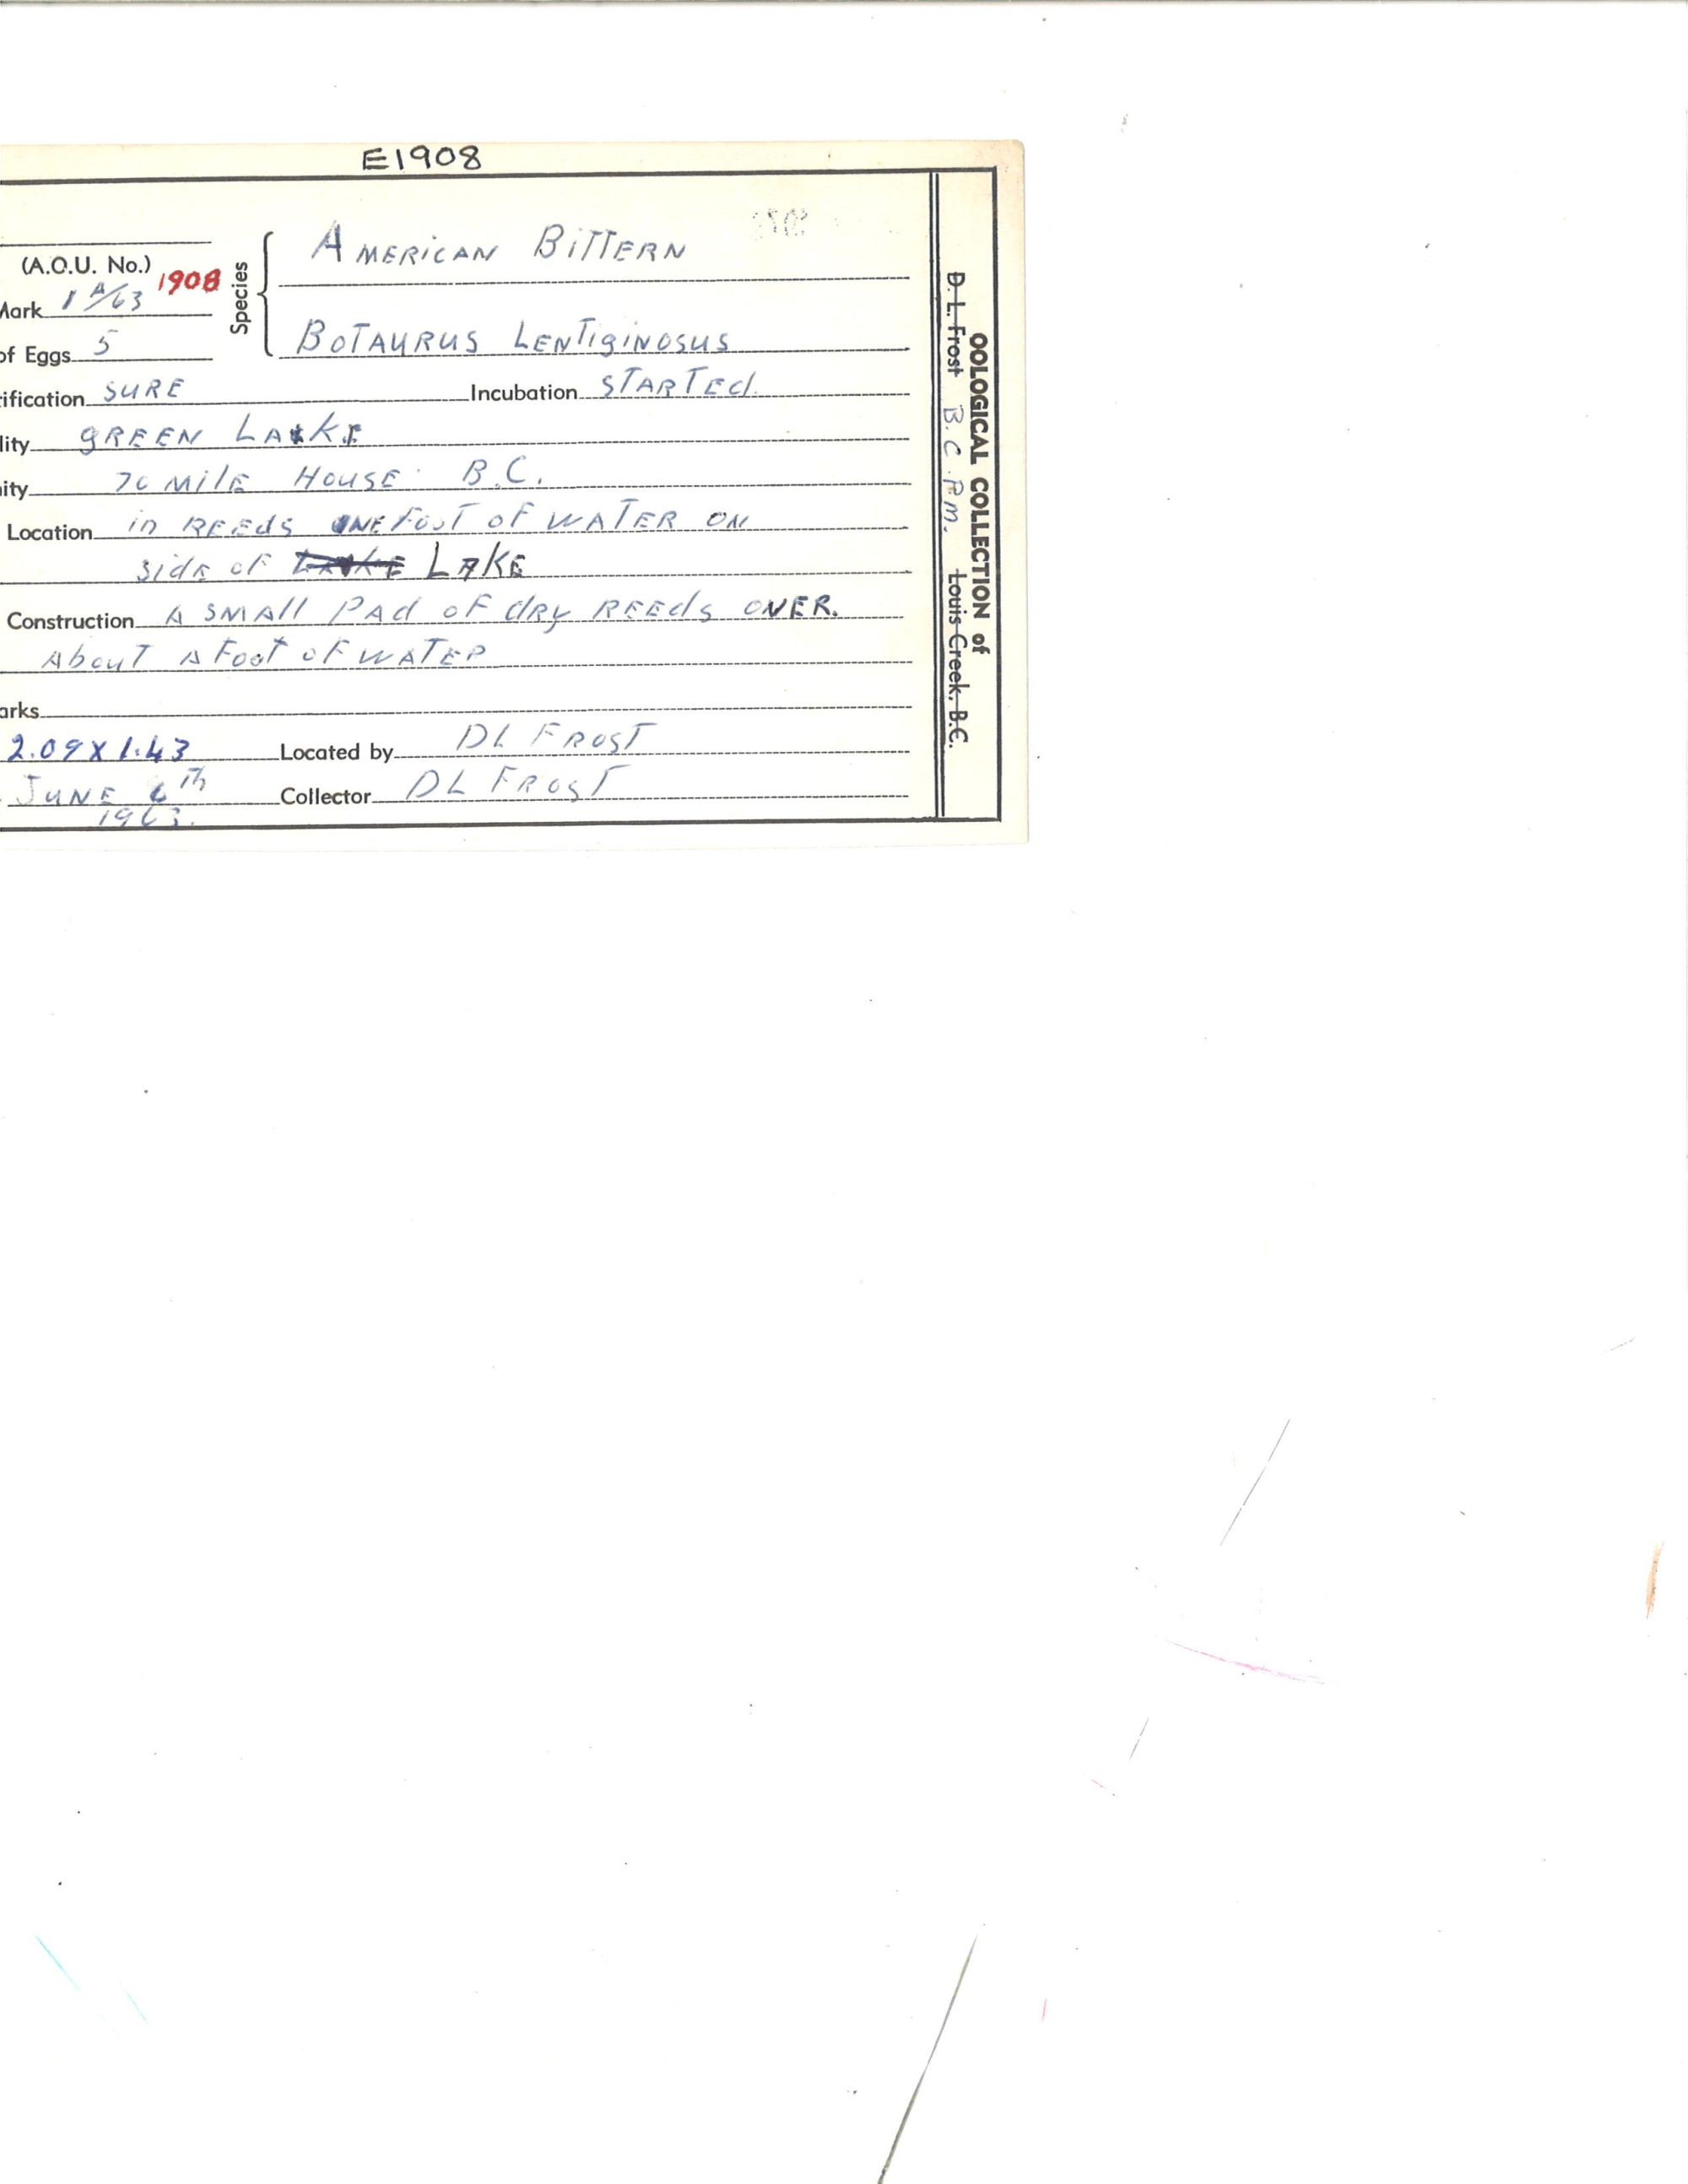 E1908
(A.O.U. No.)
1908
Mark 1 A/63
of Eggs 5
Species
AMERICAN BITTERN
BOTAURUS LENTIGINOSUS
ification SURE Incubation STARTEd
lity GREEN LAKE
ity 70 MilE HOUSE B.C.
Location in REEdS ONE FOOT OF WATER ON
sidE oF LAKE
Construction A SMAll PAd oF dRy REEds OVER.
AbouT A FooT oF WATER
arks
2.09 X 1.43 Located by DL FROST
JUNE 6th Collector DL FROST
1963.
OOLOGICAL COLLECTION of
D. L. Frost B.C.P.M. Louis Creek, B.C.